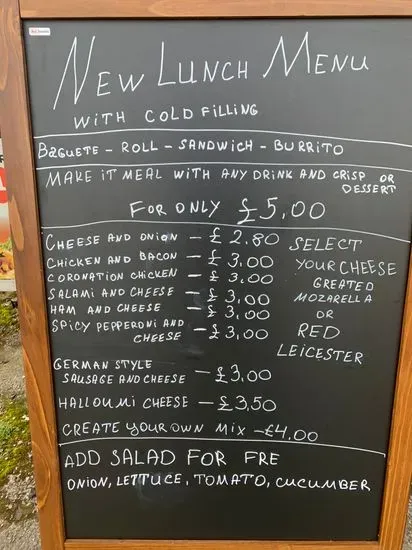 NEW LUNCH MENU
WITH COLD FILLING
BAGUETE - ROLL - SANDWICH - BURRITO
MAKE IT MEAL WITH ANY DRINK AND CRISP OR
DESSERT
FOR ONLY £5,00
CHEESE AND ONION - £ 2.80
CHICKEN AND BACON - £ 3,00
CORONATION CHICKEN - £ 3,00
SALAMI AND CHEESE - £ 3,00
HAM AND CHEESE - £ 3,00
SPICY PEPPERONI AND
CHEESE - £3,00
SELECT
YOUR CHEESE
GREATED
MOZARELLA
OR
RED
LEICESTER
GERMAN STYLE
SAUSAGE AND CHEESE - £3,00
HALLOUMI CHEESE - £3,50
CREATE YOUR OWN MIX - £4,00
ADD SALAD FOR FRE
ONION, LETTUCE, TOMATO, CUCUMBER